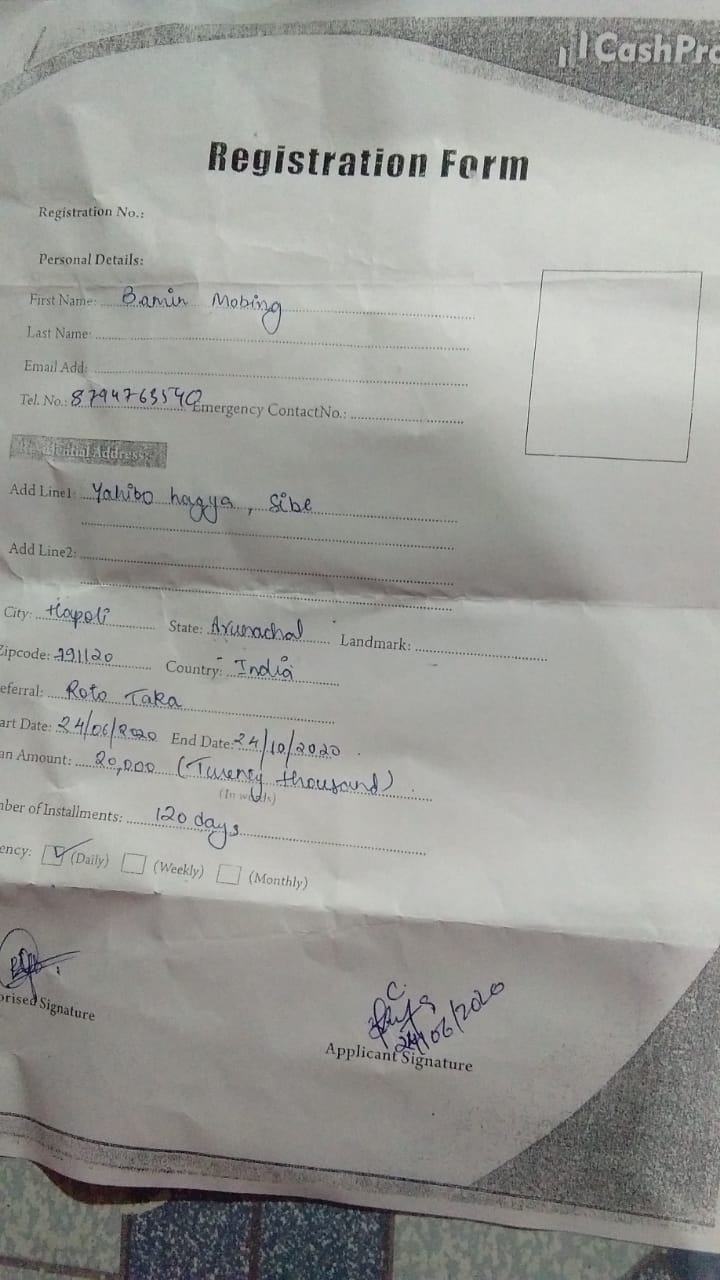 CashPro
Registration Form
Registration No.:
Personal Details:
First Name: Bamin Mobing
Last Name:
Email Add:
Tel. No.: 8794763540 Emergency ContactNo.:
Residential Address:
Add Line1: Yahibo hagya, Sibe
Add Line2:
City: Hapoli State: Arunachal Landmark:
Zipcode: 791120 Country: India
eferral: Roto Taka
art Date: 24/06/2020 End Date: 24/10/2020
an Amount: 20,000 (Twenty thousand)
(In words)
ber of Installments: 120 days
ency: (Daily) (Weekly) (Monthly)
24/06/2020
orised Signature
Applicant Signature